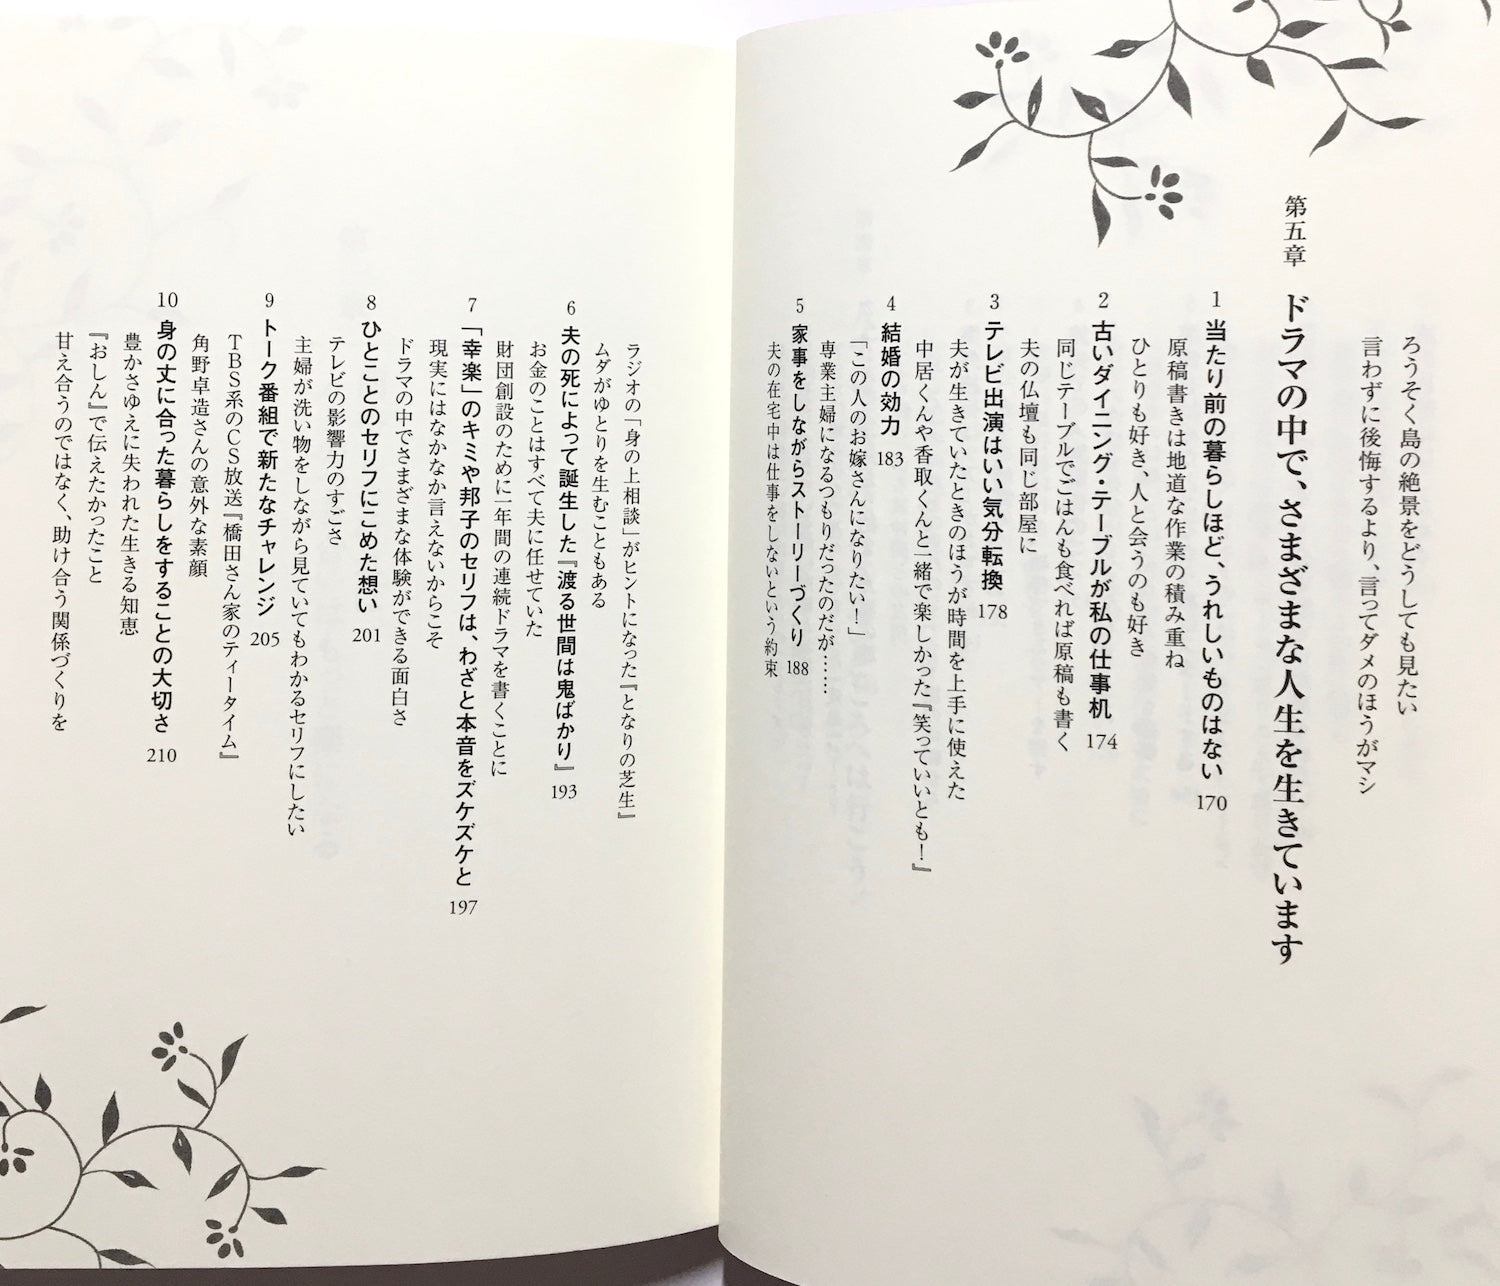 ろうそく島の絶景をどうしても見たい
言わずに後悔するより、言ってダメのほうがマシ
第五章 ドラマの中で、さまざまな人生を生きています
1 当たり前の暮らしほど、うれしいものはない 170
原稿書きは地道な作業の積み重ね
ひとりも好き、人と会うのも好き
2 古いダイニング・テーブルが私の仕事机 174
同じテーブルでごはんも食べれば原稿も書く
夫の仏壇も同じ部屋に
3 テレビ出演はいい気分転換 178
夫が生きていたときのほうが時間を上手に使えた
中居くんや香取くんと一緒で楽しかった『笑っていいとも!』
4 結婚の効力 183
「この人のお嫁さんになりたい!」
専業主婦になるつもりだったのだが……
5 家事をしながらストーリーづくり 188
夫の在宅中は仕事をしないという約束
ラジオの「身の上相談」がヒントになった『となりの芝生』
ムダがゆとりを生むこともある
6 夫の死によって誕生した『渡る世間は鬼ばかり』 193
お金のことはすべて夫に任せていた
財団創設のために一年間の連続ドラマを書くことに
7 「幸楽」のキミや邦子のセリフは、わざと本音をズケズケと 197
現実にはなかなか言えないからこそ
ドラマの中でさまざまな体験ができる面白さ
8 ひとことのセリフにこめた想い 201
テレビの影響力のすごさ
主婦が洗い物をしながら見ていてもわかるセリフにしたい
9 トーク番組で新たなチャレンジ 205
TBS系のCS放送『橋田さん家のティータイム』
角野卓造さんの意外な素顔
10 身の丈に合った暮らしをすることの大切さ 210
豊かさゆえに失われた生きる知恵
『おしん』で伝えたかったこと
甘え合うのではなく、助け合う関係づくりを